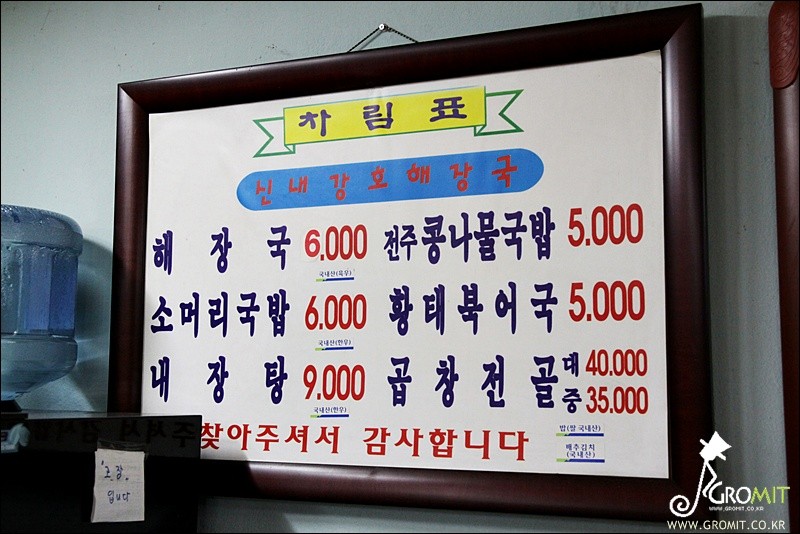 차림표
신내강호해장국
해장국 6.000 전주콩나물국밥 5.000
국내산(육우)
소머리국밥 6.000 황태북어국 5.000
국내산(한우)
내장탕 9.000 곱창전골 대 40.000
중 35.000
국내산(한우)
찾아주셔서 감사합니다
밥(쌀 국내산)
배추김치
(국내산)
입니다
GROMIT
WWW.GROMIT.CO.KR
WWW.GROMIT.CO.KR